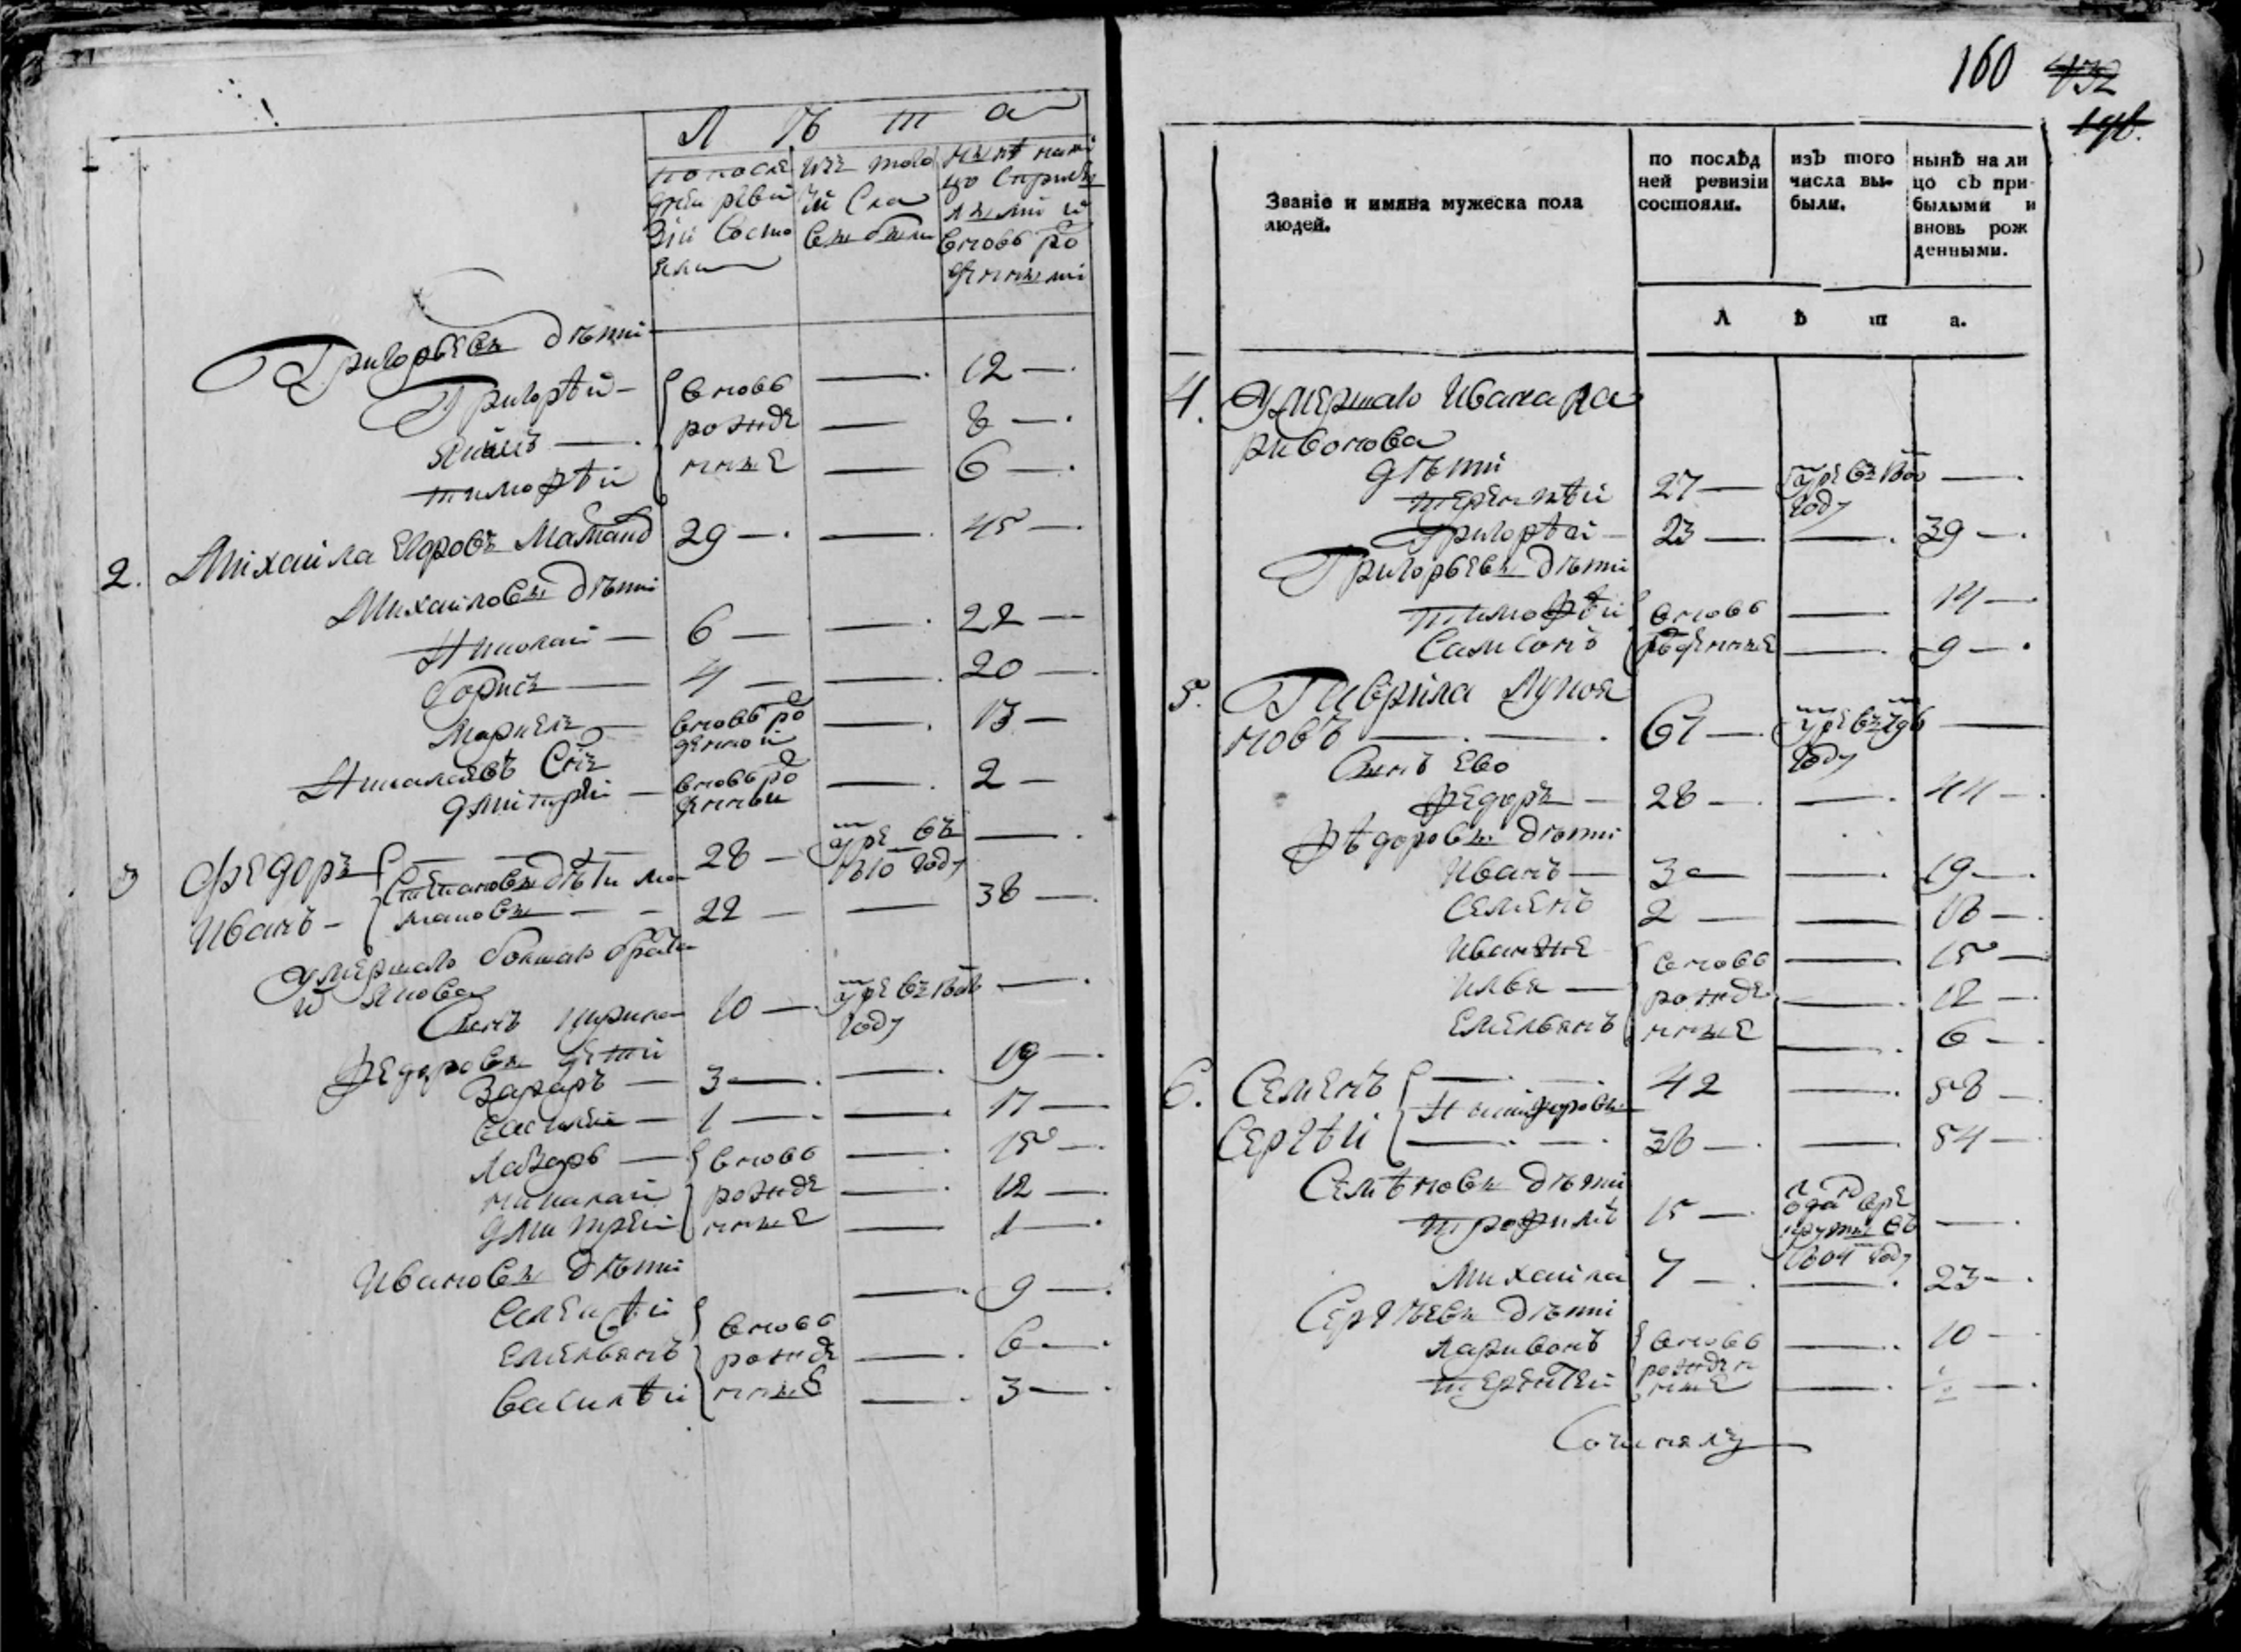 Л ѣ т а
по после
дней реви
зіи состо
яли
изъ того
числа
выбыли
нынѣ нали
цо с прибы
лыми и
вновь ро
жденными
Григорьевы дѣти
Григорѣй вновь 12
Яковъ рожде 8
Тимофѣй нные 6
2. Михаила Егоровъ 29 45
Михаиловы дѣти
Николай 6 22
Борисъ 4 20
вновь ро 13
жденной
Николаевъ Сынъ
Дмитрѣй вновь ро 2
жденный
3 Федоръ Степановы дѣти 28 умре въ
1810 году
Иванъ 22 38
умершаго большаго брата
и Якова
Сынъ Кирила 10 умре въ
году
Федоровы дети
Захаръ 3 19
Василѣй 1 17
Лазарь вновь 15
Николай рожде 12
Дмитрей нные 1
Ивановы дѣти
9
Емельянъ вновь 6
рожде
Василѣй нные 3
160 432
196.
Званіе и имяна мужеска пола
людей.
по послѣд
ней ревизіи
состояли.
изъ того
числа вы-
были.
нынѣ на ли
цо съ при-
былыми и
вновь рож
денными.
Л ѣ т а.
4. Умершаго Ивана Ла
ривонова
дѣти
Терентѣй 27 умре въ
году
Григорѣй 23 39
Григорьевы дѣти
Тимофѣй вновь 14
Самсонъ рожденные 9
5. Гаврила Лукоя
новъ 67 умре въ 796
году
Сынъ Ево
Федоръ 28 44
Фѣдоровы дѣти
Иванъ 3 19
Семенъ 2 18
Иван же вновь 15
Илья рожде 12
Емельянъ нные 6
6. Семенъ 42 58
Никифоровы
Сергѣй 38 54
Семѣновы дѣти
Трофимъ 15 одан в ре
круты въ
1804 году
Михаила 7 23
Сергѣевы дѣти
Ларивонъ вновь 10
Терентей рожден ½
ные
Сочинялъ